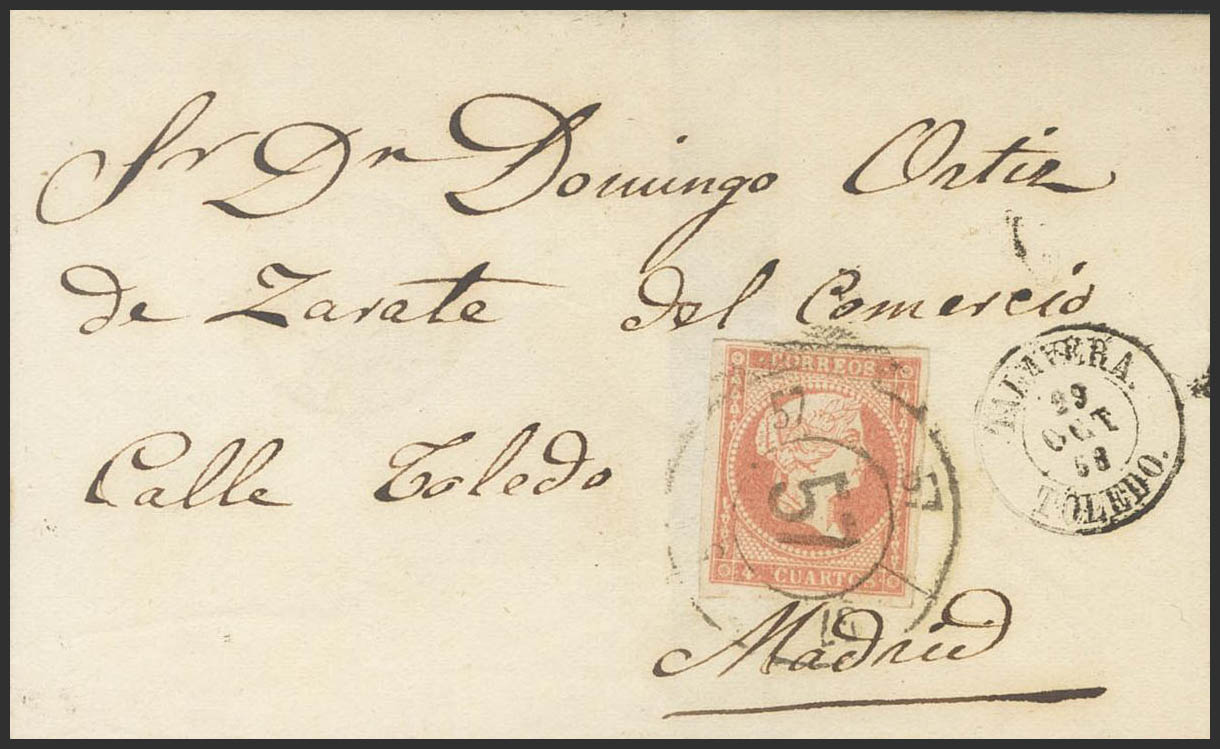 Sr Dn Domingo Ortiz
de Zarate del Comercio
Calle Toledo
Madrid
CORREOS
4 CUARTOS
57
57
57
TALAVERA.
29
OCT
58
TOLEDO.